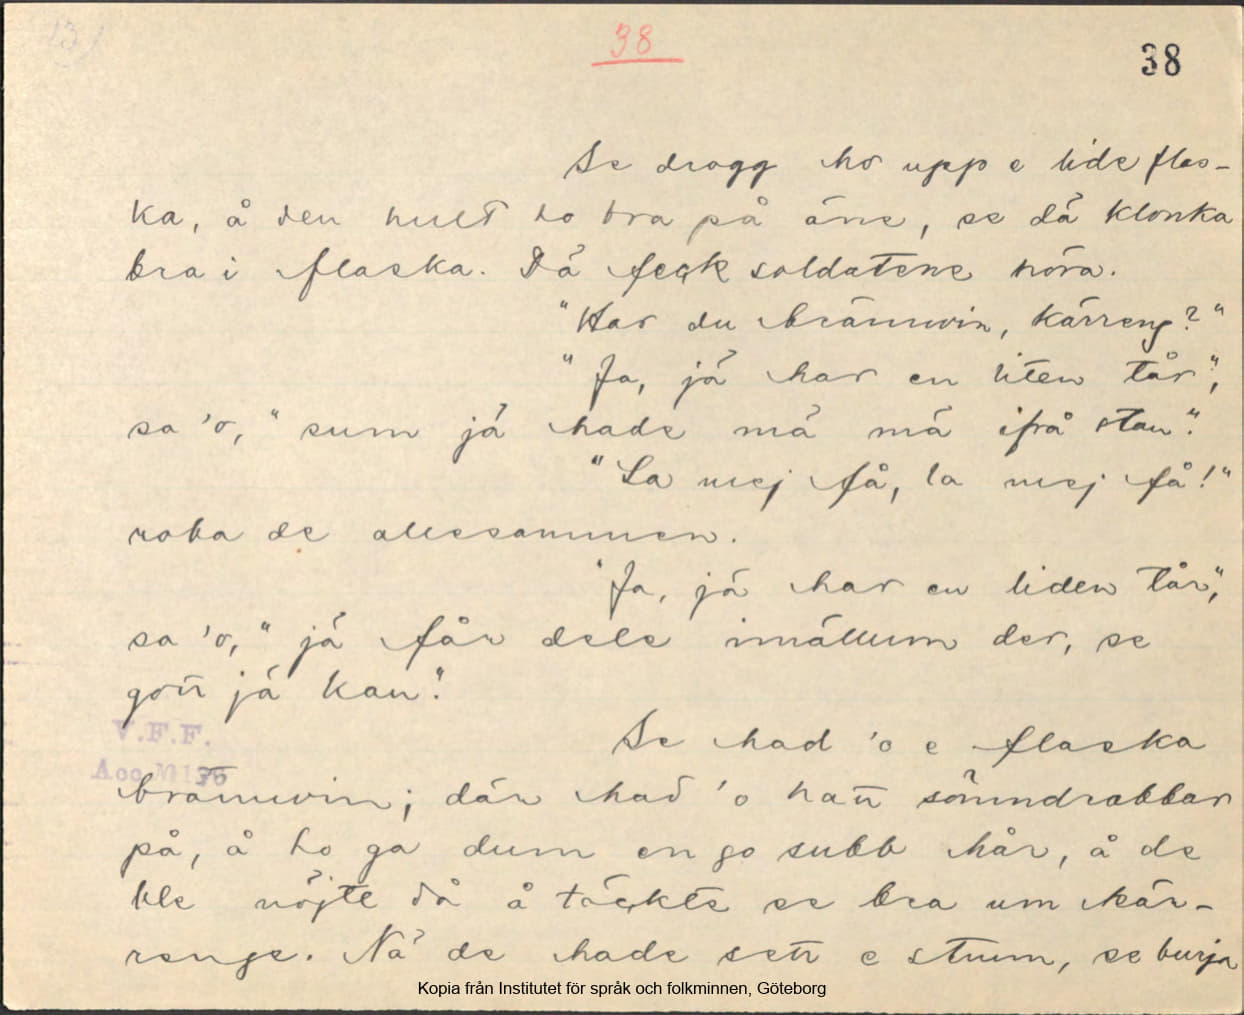 38
38
Se drogg ho upp e lide flas-
ka, å den hult ho bra på äne, se dä klonka
bra i flaska. Dä feck soldatene höra.
"Har du brännvin, kärreng?"
"Ja, jä har en liten tår",
sa 'o, "sum jä hade mä mä ifrå stan".
"La mej få, la mej få!"
roba de allesammen.
"Ja, jä har en liden tår",
sa 'o, "jä får dele imällum der, se
gott jä kan".
Se had 'o e flaska
V.F.F.
brännvin; där had 'o hatt sömndrabbar
på, å ho ga dum en go subb hår, å de
ble nöjte då å täckte se bra um kär-
renge. Nä de hade sett e stunn, se burja
Kopia från Institutet för språk och folkminnen, Göteborg